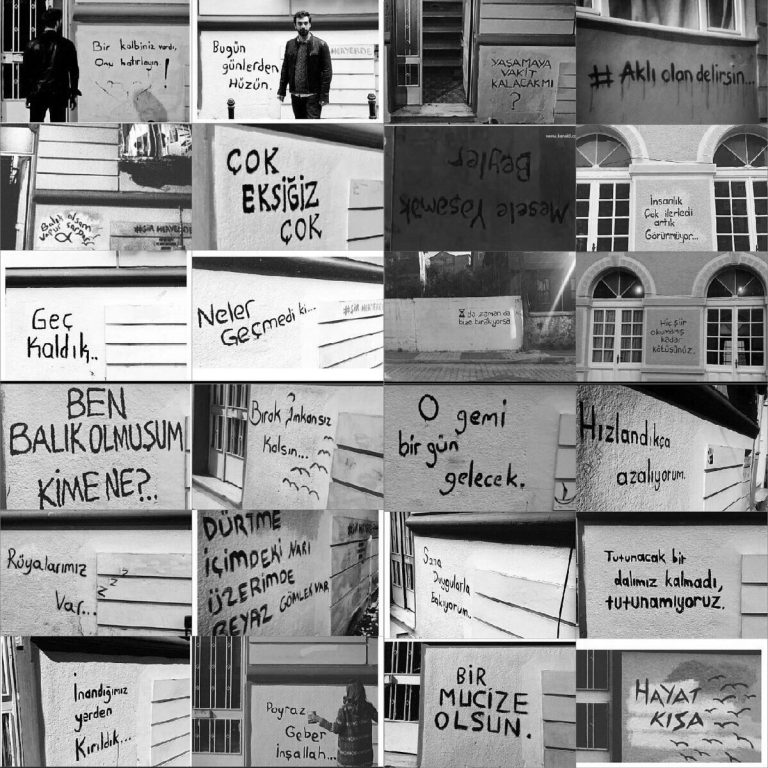 Bir kalbiniz vardı,
Onu hatırlayın.!
Bugün
günlerden
Hüzün.
#ŞİİR HERYERDE
YAŞAMAYA
VAKİT
KALACAKMI
?
# Aklı olan delirsin...
Balık olsam
#ŞİİR HERYERDE
ÇOK
EKSİĞİZ
ÇOK
Mesele Yaşamak
Beyler
İnsanlık
Çok ilerledi
artık
Görünmüyor...
Geç
Kaldık..
Neler
Geçmedi ki...
#ŞİİR HERYERDE
da zaman da
bize bırakıyorsa
Hiç şiir
okumamış
kadar
kötüsünüz.
BEN
BALIK OLMUŞUM
KİME NE?..
Bırak İmkansız
Kalsın...
O gemi
bir gün
gelecek.
Hızlandıkça
azalıyorum.
Rüyalarımız
Var...
Z
Z
Z
DÜRTME
İÇİMDEKİ NARI
ÜZERİMDE
BEYAZ GÖMLEK VAR
Sana
Duygularla
Bakıyorum.
Tutunacak bir
dalımız kalmadı,
tutunamıyoruz.
İnandığımız
yerden
Kırıldık...
Poyraz
Geber
İnşallah...
BİR
MUCİZE
OLSUN.
HAYAT
KISA